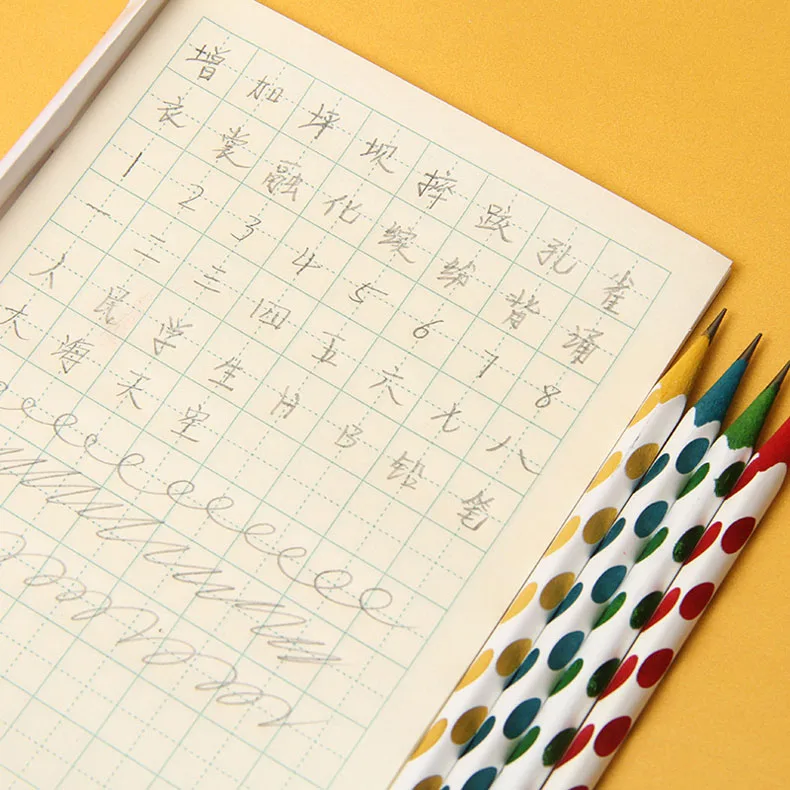 增加坪坝摔跤孔雀
衣裳融化绽绵背诵
1 2 3 4 5 6 7 8
一二三四五六七八
人民学生HB铅笔
大海天空